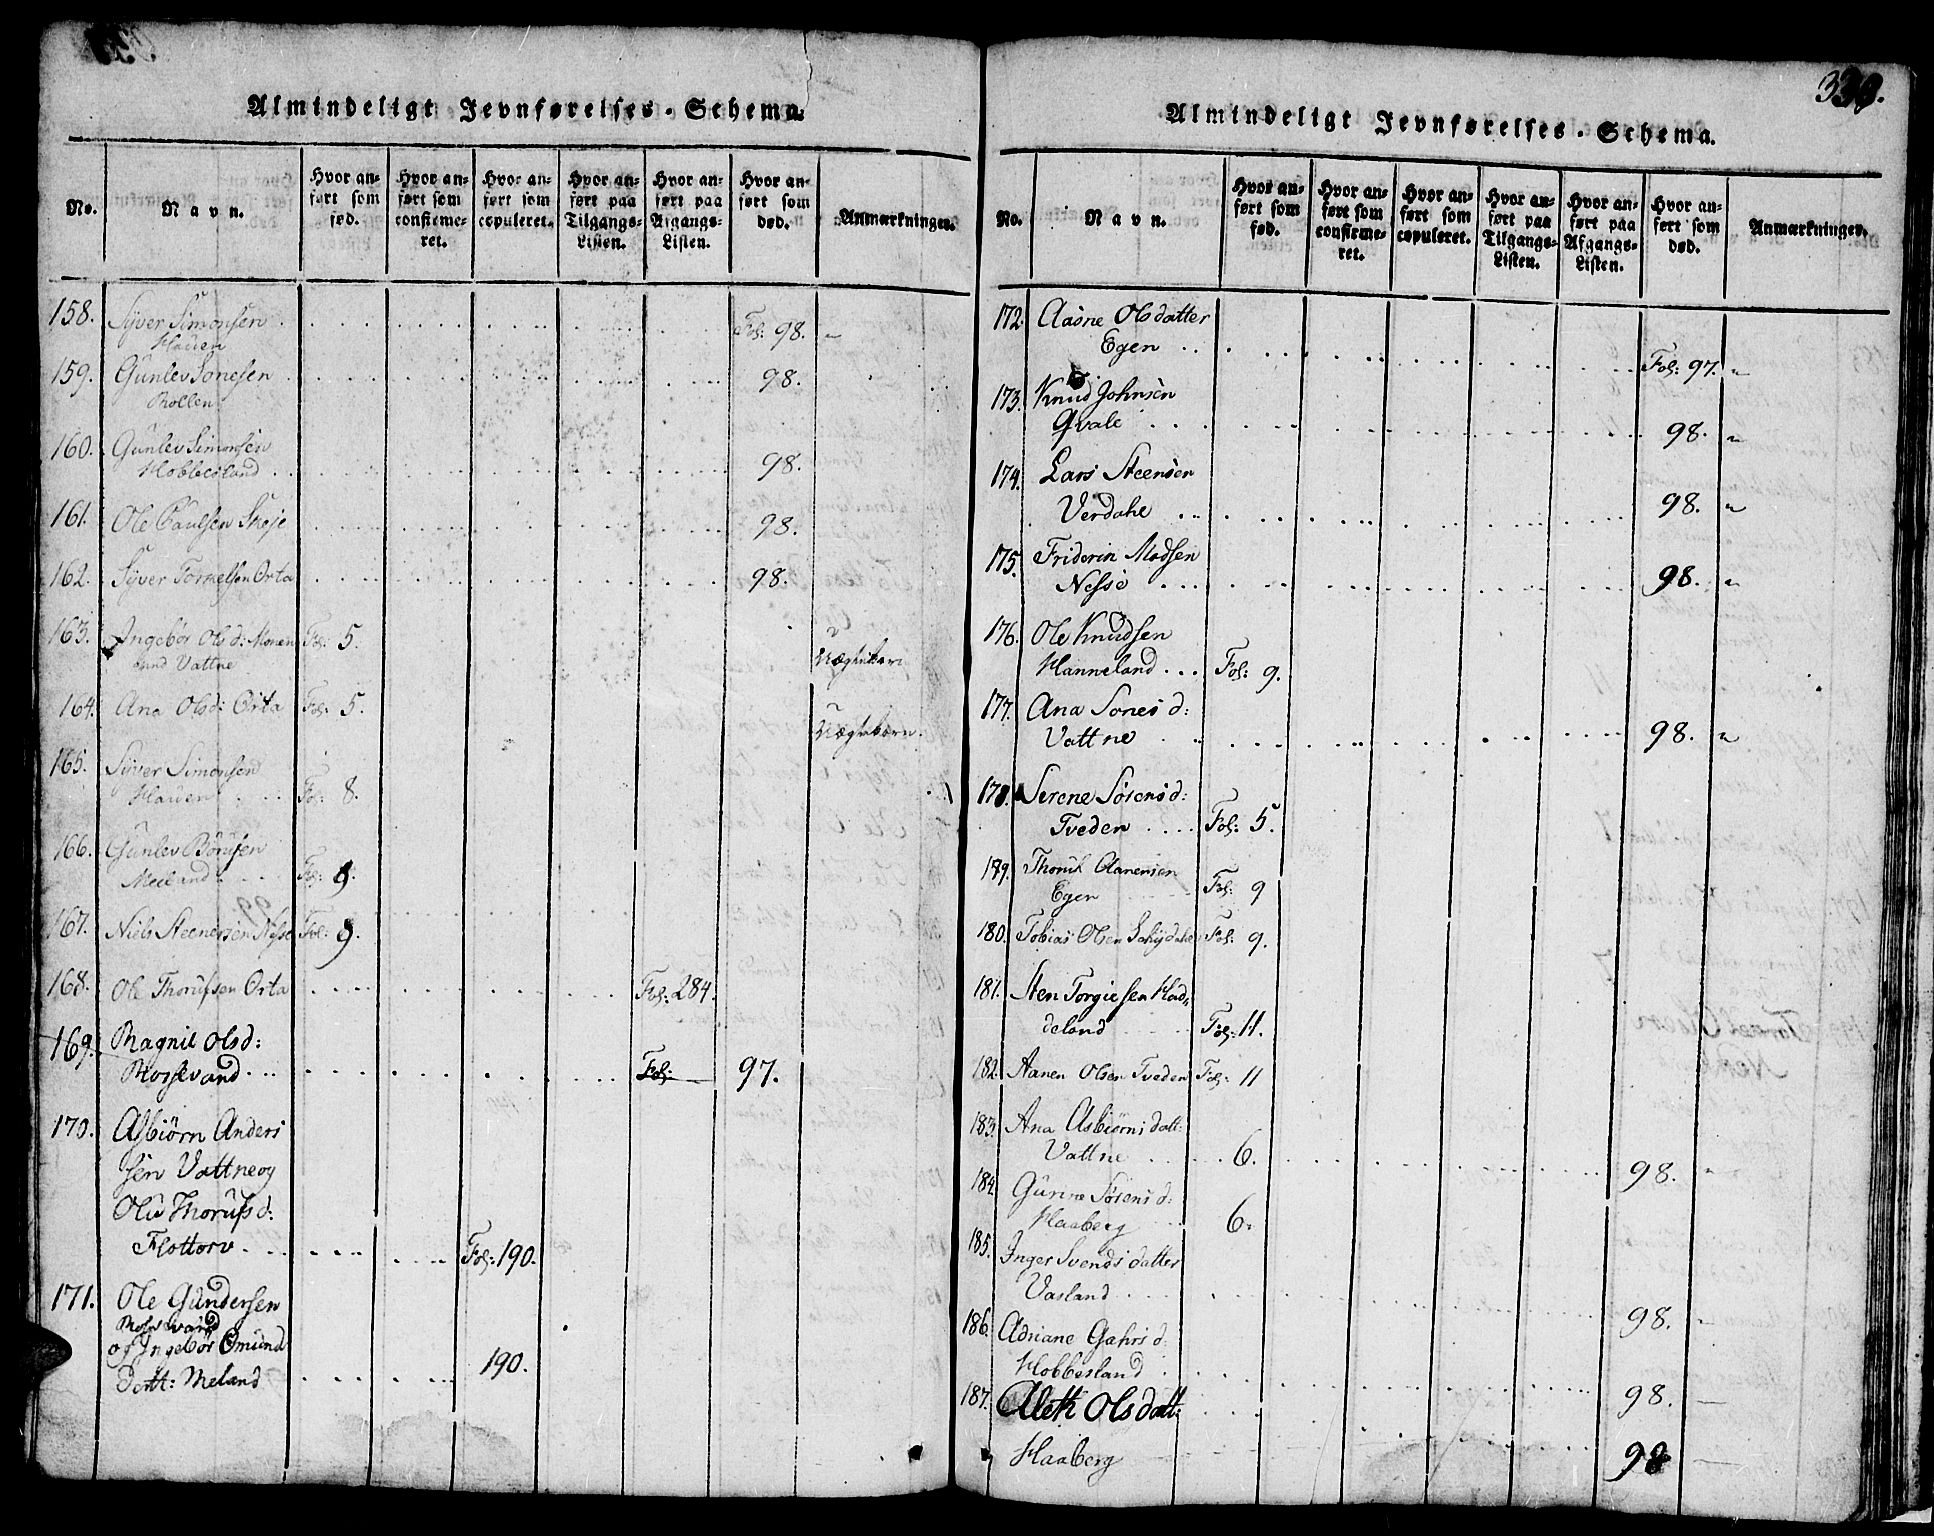 Almindeligt Jevnførelses-Schema.
No. Navn. Hvor anført som fød. Hvor anført som confirmeret. Hvor anført som copuleret. Hvor anført paa Tilgangs-Listen. Hvor anført paa Afgangs-Listen. Hvor anført som død. Anmærkninger.
158. Syver Simonsen Fol: 98. "
Hauen
159. Gunlev Sonesen 98.
Rollen
160. Gunlev Simonsen
Hobbesland 98.
161. Ole Paulsen Skeje 98.
162. Syver Tormelsen Orta 98.
163. Ingebor Olsd: Monen Fol: 5.
land Vattne Uægtebarn
164. Ana Olsd: Orta Fol: 5. Uægtebarn.
165. Syver Simonsen
Hauen Fol: 8.
166. Gunlev Børufsen
Meeland Fol: 9.
167. Niels Steenersen Nesse Fol: 9.
168. Ole Thorufsen Orta Fol: 284.
169. Ragnil Olsd:
Mossevand Fol: 97.
170. Asbiørn Anders
sen Vattne og
Olu Thorufsd:
Flottorv Fol: 190.
171. Ole Gundersen
Mossevand
og Ingebor Omund
datt: Meland 190.
339.
Almindeligt Jevnførelses-Schema.
No. Navn. Hvor anført som fød. Hvor anført som confirmeret. Hvor anført som copuleret. Hvor anført paa Tilgangs-Listen. Hvor anført paa Afgangs-Listen. Hvor anført som død. Anmærkninger.
172. Aasne Olsdatter
Egen Fol: 97. "
173. Knud Johnsen
Qvale 98. "
174. Lars Steensen
Verdahe 98. "
175. Friderin Madsen
Nesse 98. "
176. Ole Knudsen
Hanneland Fol: 9.
177. Ana Sones d:
Vattne 98. "
178. Serene Sørens d:
Tveden Fol: 5.
179. Thorul Aanensen
Egen Fol: 9
180. Tobias Olsen Fol: 9.
181. Sten Torgiesen Had,
deland Fol: 11.
182. Aanen Olsen Tveden Fol: 11
183. Ana Asbiørns datt:
Vattne 6. 98. "
184. Gunne Sørens d:
Haaberg 6.
185. Inger Svends datter
Vasland 98. "
186. Adriane Gahrs d:
Hobbesland 98. "
187. Aleth Olsdatt:
Haaberg 98 "